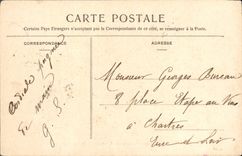 CARTE POSTALE
Certains Pays Etrangers n'acceptent pas la Correspondance de ce côté, se renseigner à la Poste.
CORRESPONDANCE
ADRESSE
Cordiale poignée
de main
G. S.
Monsieur Georges Bureau
8 place Etape au Vin
à Chartres
Eure et Loir